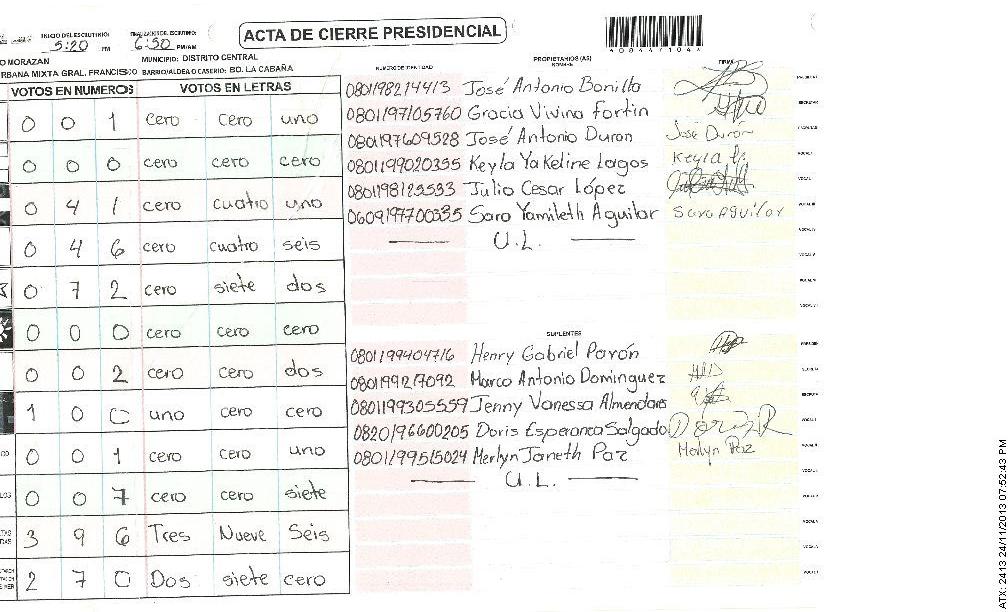 ACTA DE CIERRE PRESIDENCIAL
INICIO DEL ESCRUTINIO:
5:20 PM
FINALIZACION DEL ESCRUTINIO:
6:30 PM/AM
O MORAZAN
MUNICIPIO: DISTRITO CENTRAL
RBANA MIXTA GRAL. FRANCISCO BARRIO/ALDEA O CASERIO: BO. LA CABAÑA
VOTOS EN NUMEROS VOTOS EN LETRAS
0 0 1 cero cero uno
0 0 0 cero cero cero
0 4 1 cero cuatro uno
0 4 6 cero cuatro seis
0 7 2 cero siete dos
0 0 0 cero cero cero
0 0 2 cero cero dos
1 0 0 uno cero cero
0 0 1 cero cero uno
0 0 7 cero cero siete
3 9 6 Tres Nueve Seis
2 7 0 Dos siete cero
NUMERO DE IDENTIDAD
PROPIETARIOS (AS)
NOMBRE
FIRMA
0801198214413 José Antonio Bonilla
0801197105760 Gracia Vivina Fortin
0801197609528 José Antonio Duron José Duron
0801199020355 Keyla Yakeline Lagos Keyla
0801198123533 Julio Cesar López
0609197700335 Sara Yamileth Aguilar Sara Aguilar
U.L.
SUPLENTES
0801199404716 Henry Gabriel Pavón
0801199217092 Marco Antonio Dominguez
0801199305559 Jenny Vanessa Almendares
0820196600205 Doris Esperanca Salgado
0801199515024 Merlyn Janeth Paz Merlyn Paz
U.L.
ATX: 2413 24/11/2013 07:52:43 PM